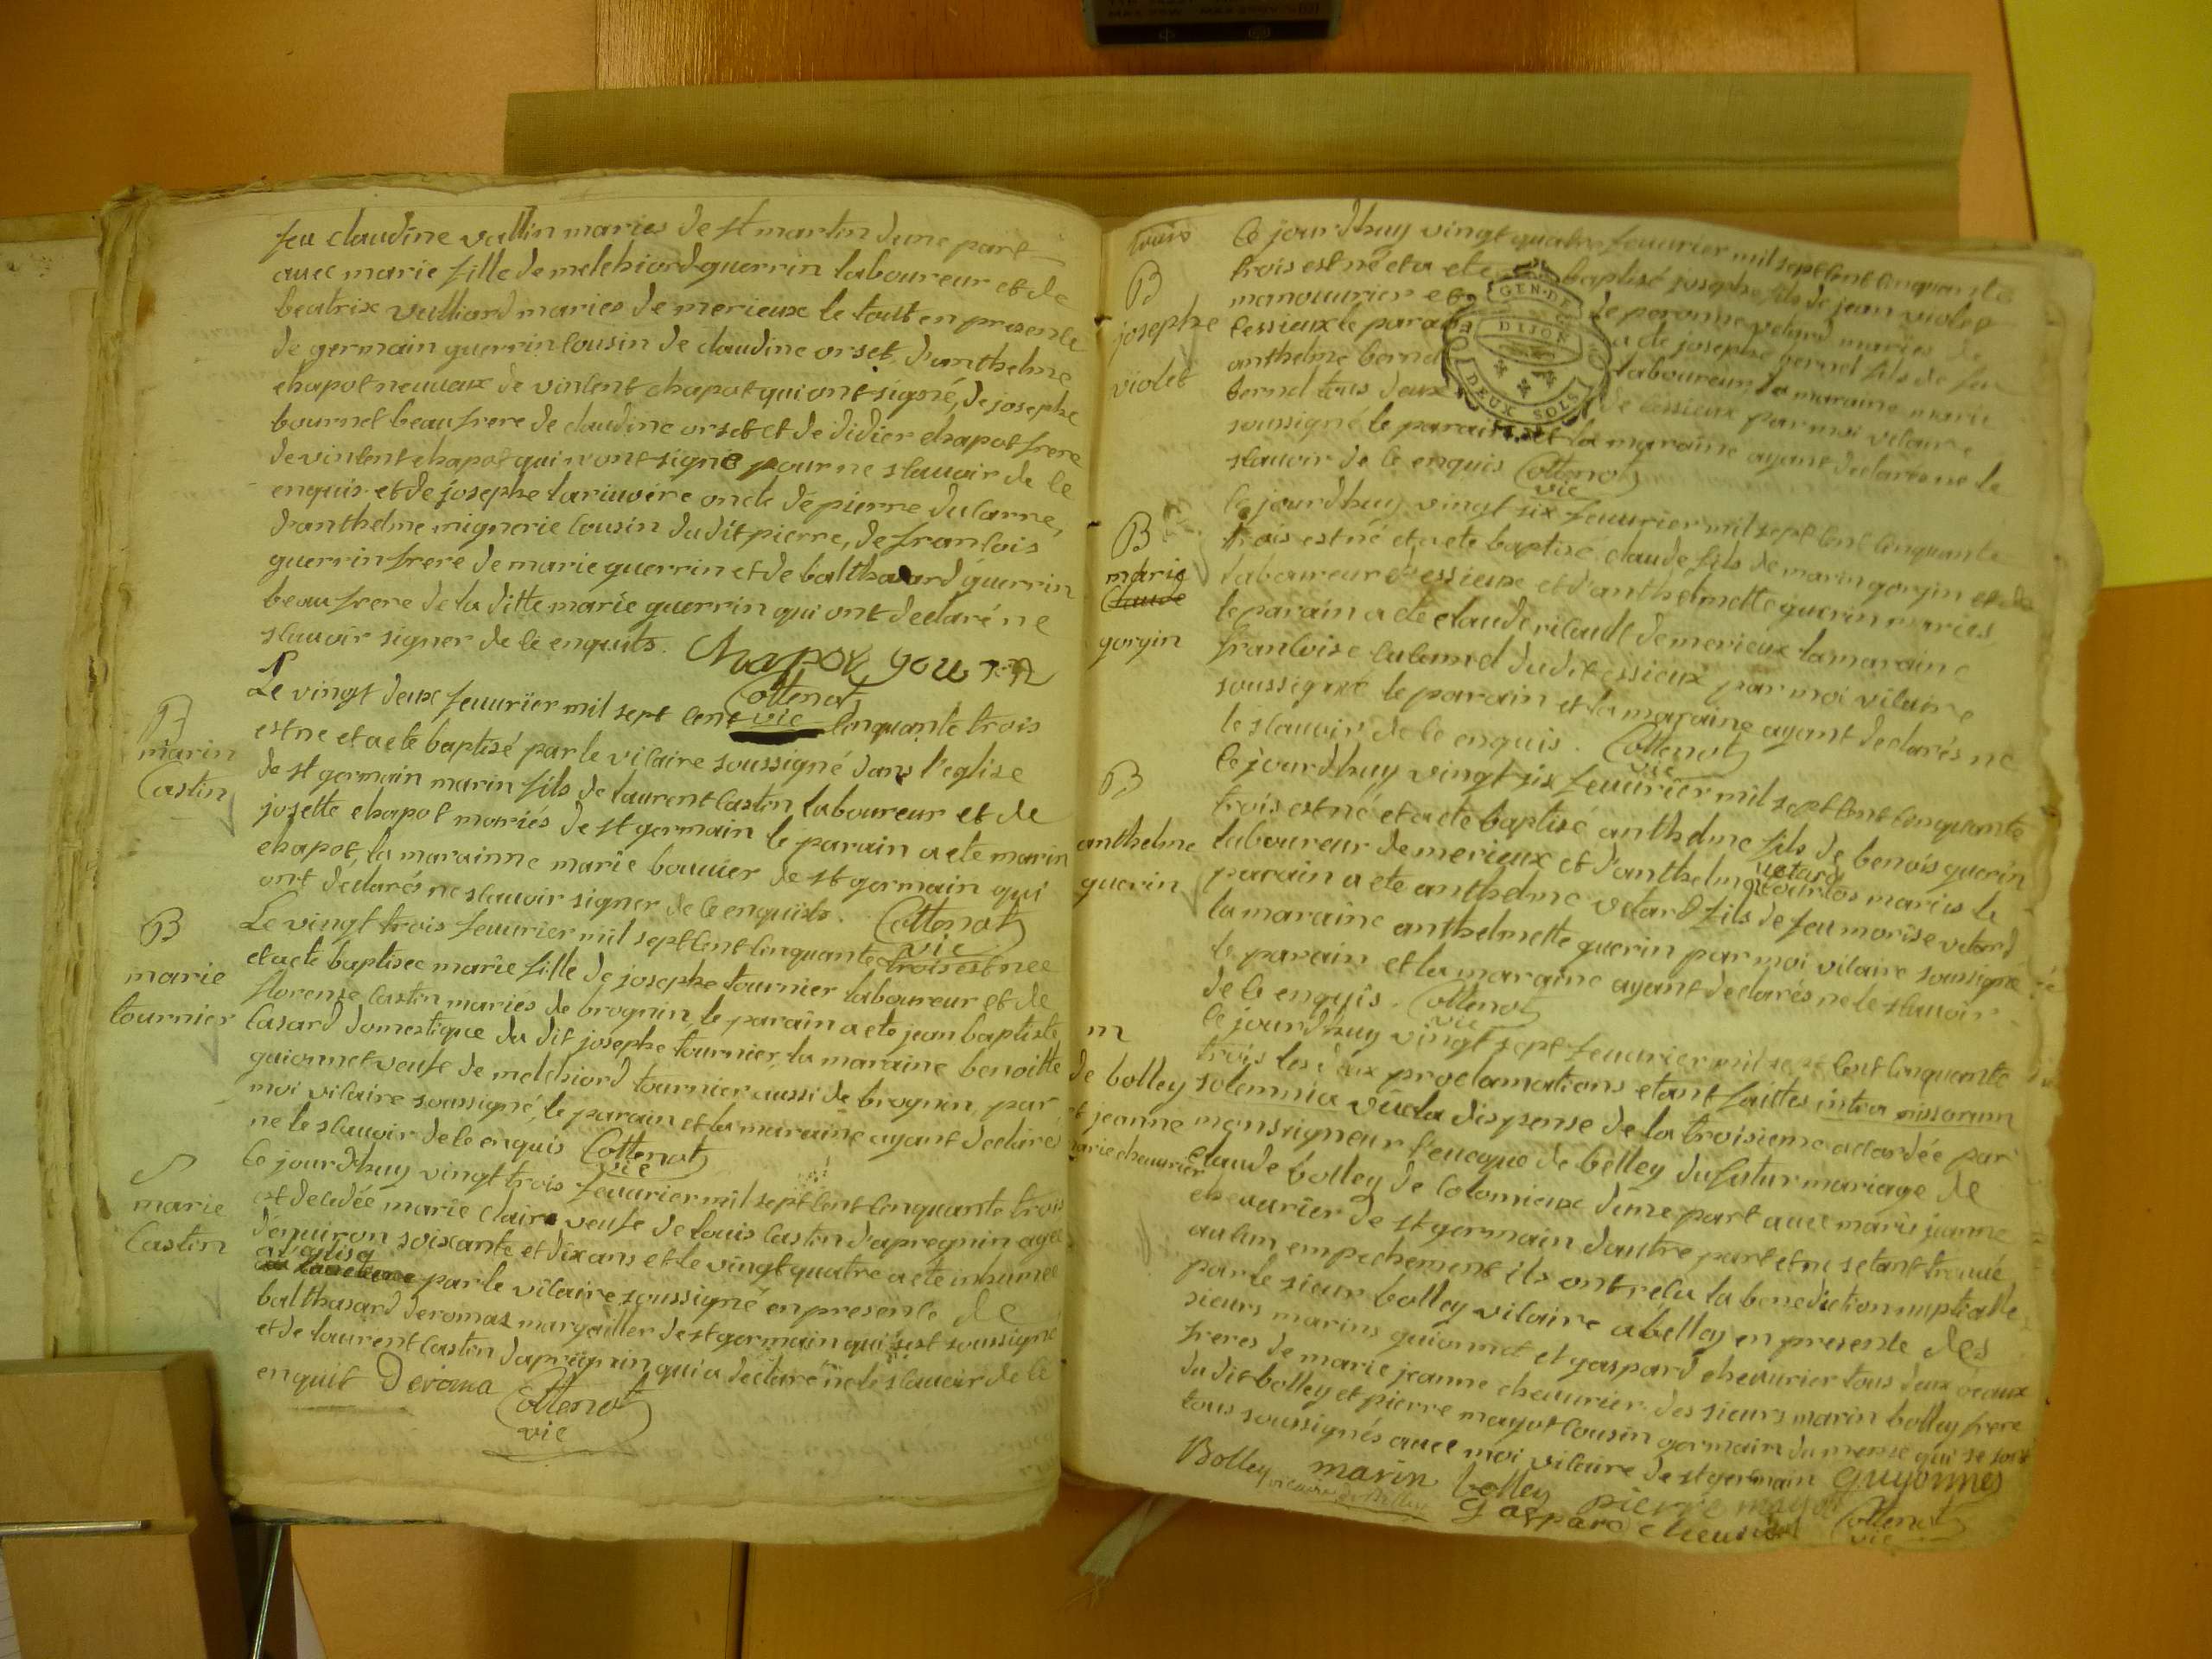 feu claudine vallin mariés de st martin dune part
avec marie fille de melchiord guerrin laboureur et de
beatrix vulliard mariés de merieux le tout en presence
de germain guerrin cousin de claudine orset, d'anthelme
chapot neuvaux de vincent chapot qui ont signé, de josephe
bournet beaufrere de claudine orset et de didier chapot frere
de vincent chapot qui n'ont signé pour ne scavoir de ce
enquis et de josephe lariuvoire oncle de pierre
d'anthelme mignerie cousin dudit pierre, de francois
guerrin frere de marie guerrin et de balthasard guerrin
beaufrere de la ditte marie guerrin qui ont declaré ne
scavoir signer de ce enquits. Chapot
Cottenot
vic
B
marin
Castin
Le vingt deux feuvrier mil sept cent cinquante trois
est ne et a ete baptisé par le vicaire soussigné dans l'eglise
de st germain marin fils de laurent Castin laboureur et de
josette chapot mariés de st germain le parain a ete marin
chapot, la marainne marie bouvier de st germain qui
ont declarés ne scavoir signer de ce enquists. Cottenot
vic
B
marie
tournier
Le vingt trois feuvrier mil sept cent cinquante trois est nee
et a ete baptisee marie fille de josephe tournier laboureur et de
florense Castin mariés de brognin, le parain a ete jean baptiste
Casard domestique du dit josephe tournier, la maraine benoitte
guionnet veufe de melchiord tournier aussi de brognin, par
moi vicaire soussigné, le parain et la maraine ayant declarés
ne le scavoir de ce enquis Cottenot
vic
S
marie
Castin
Ce jourdhuy vingt trois feuvrier mil sept cent cinquante trois
est decedée marie claire veufe de louis Castin d'apregnin agée
d'enuiron soixante et dix ans et le vingt quatre a ete inhumée
par le vicaire soussigné en presence de
balthasard deromas margailler de st germain qui s'est soussigné
et de laurent Castin d'apregnin qui a declaré ne le scavoir de ce
enquit Deroma Cottenot
vic
trois
B
josephe
violet
Ce jourdhuy vingt quatre feuvrier mil sept cent cinquante
trois est né et a ete baptisé josephe fils de jean violet
manouvrier et de peronne vetard mariés de
cessieux le parain a de josephe bernd fils de feu
anthelme bernd laboureur, la maraine marie
bernd tous deux de cessieux par moi vicaire
soussigné le parain et la maraine ayant declarés ne le
scavoir de ce enquis Cottenot
vic
GEN. DE
DIJON
DEUX SOLS
B
marie
Claude
gorgin
Ce jourdhuy vingt six feuvrier mil sept cent cinquante
trois est né et a ete baptisé claude fils de marin gorgin et de
laboureur d'essieux et d'anthelmette guerin mariés
le parain a ete claude ricaud de merieux la maraine
francoise dudit essieux par moi vicaire
soussigné le parain et la maraine ayant declarés ne
le scavoir de ce enquis. Cottenot
vic
B
anthelme
guerin
Ce jourdhuy vingt six feuvrier mil sept cent cinquante
trois est né et a ete baptisé anthelme fils de benois guerin
laboureur de merieux et d'anthelme vetard mariés le
parain a ete anthelme vetard fils de feu morise vetard
la maraine anthelmette guerin par moi vicaire soussigné
le parain et la maraine ayant declarés ne le scavoir
de ce enquis. Cottenot
vic
m
de bolley
et jeanne
marie cheuvrier
Ce jourdhuy vingt sept feuvrier mil sept cent cinquante
trois les deux proclamations etant faittes intra missarum
solemnia veu la dispense de la troisieme accordée par
monseigneur l'eveque de belley du futur mariage de
claude bolley de colomieux dune part avec marie jeanne
cheuvrier de st germain dautre part et ne setant trouvé
aucun empechement ils ont recu la benediction nuptialle
par le sieur bolley vicaire a belley en presence des
sieurs marins guionnet et gaspard cheuvrier tous deux beaux
freres de marie jeanne cheuvrier des sieurs marin bolley frere
du dit bolley et pierre mayot cousin germain du mesme qui se sont
tous soussignés avec moi vicaire de st germain guyonnet
Bolley marin bolley pierre mayot
vicaire de Belley gaspard cheuvrier Cottenot
vic